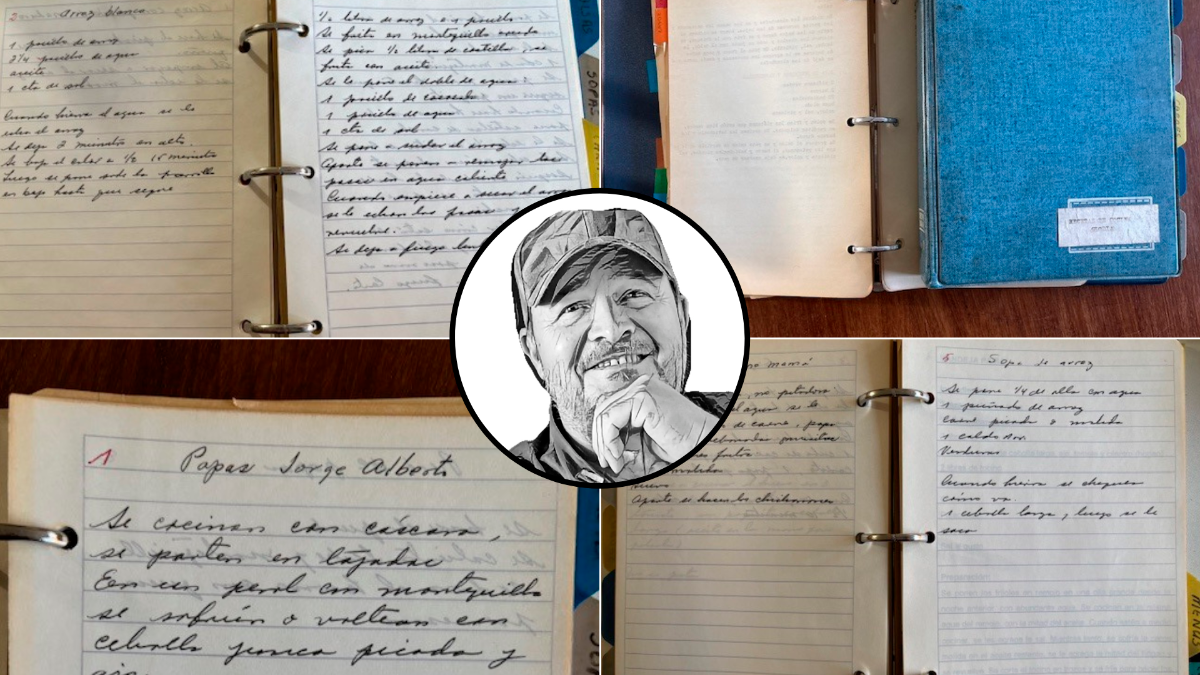 2 Arroz blanco
1 pocillo de arroz
2 1/4 pocillo de agua
aceite
1 cta de sal
Cuando hierva el agua se le
echa el arroz
Se deja 3 minutos en alto.
Se baja el calor a 1/2 15 minutos
Luego se pone sobre la parrilla
en bajo hasta que seque
1/2 libra de arroz o un pocillo
Se frita en mantequilla rosada
Se pica 1/2 libra de costilla, se
frita con aceite
Se le pone el doble de agua:
1 pocillo de cocacola
1 pocillo de agua
1 cta de sal
Se pone a sudar el arroz
Aparte se ponen a remojar las
pasas en agua caliente
Cuando empiece a secar el arroz
se le echan las pasas
revuelve.
Se deja a fuego
1 Papas Jorge Alberto
Se cocinan con cáscara,
se parten en tajadas
En un perol con mantequilla
se sofríen o voltean con
cebolla junca picada y
mamá
el agua se le
de carne, papa
Aparte se hacen los
5 Sopa de arroz
Se pone 1/4 de olla con agua
1 puñado de arroz
carne picada o molida
1 caldo
Verduras
Cuando hierva se chequea
cómo va.
1 cebolla larga, luego se le
saca
SOPAS
MENUS